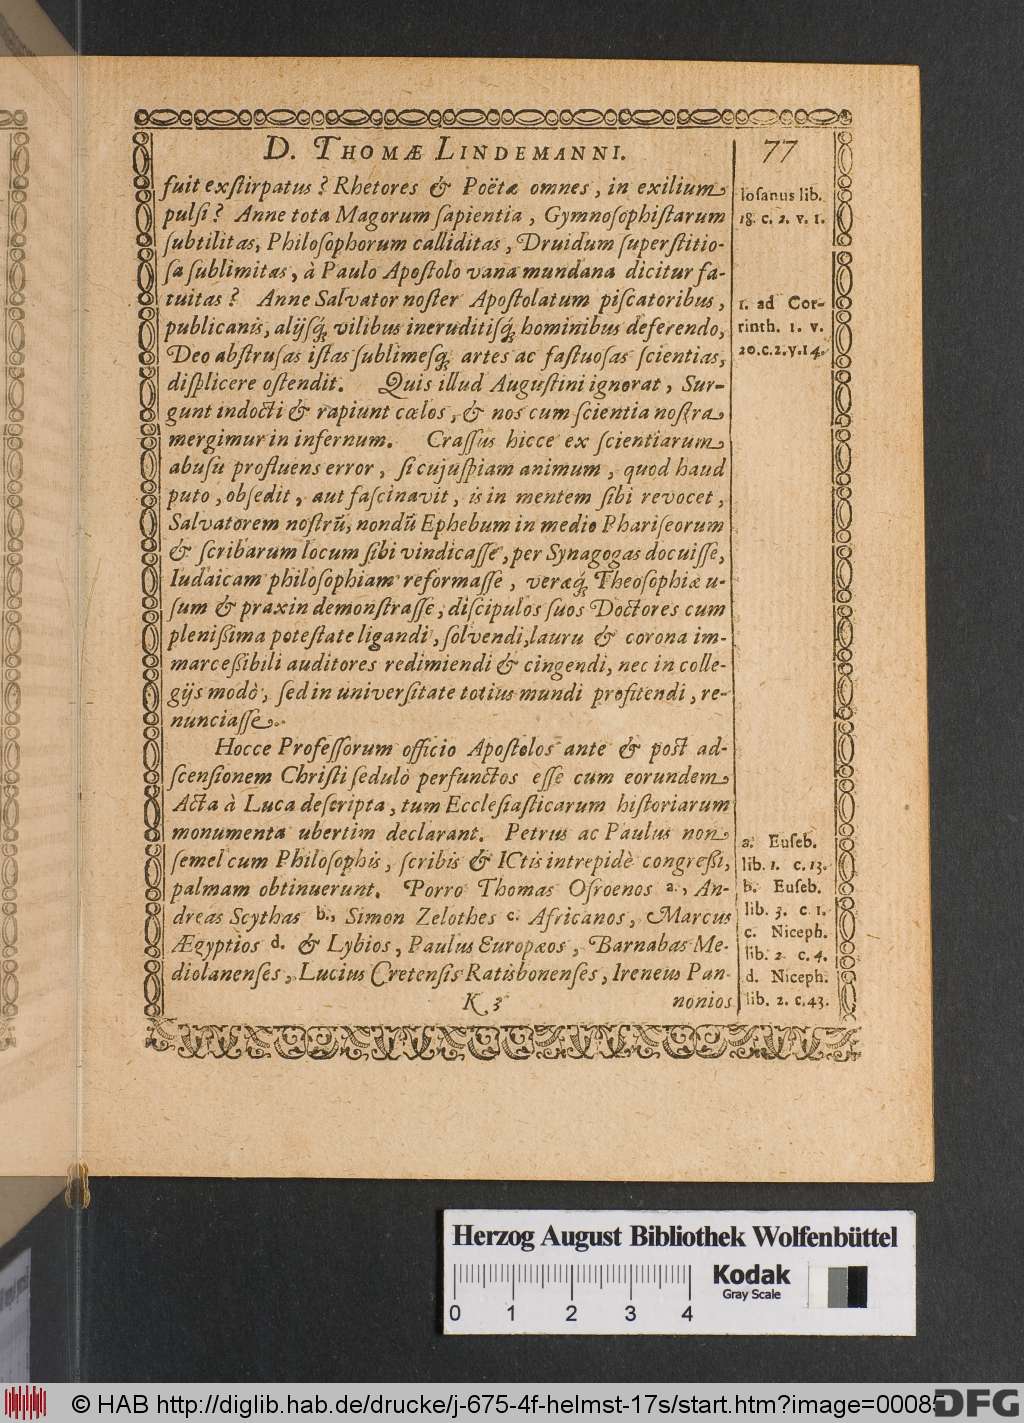 D. THOMÆ LINDEMANNI.
77
fuit exſtirpatus? Rhetores & Poëtæ omnes, in exilium
pulſi? Anne tota Magorum ſapientia, Gymnoſophiſtarum
ſubtilitas, Philoſophorum calliditas, Druidum ſuperſtitio-
ſa ſublimitas, à Paulo Apoſtolo vana mundana dicitur fa-
tuitas? Anne Salvator noſter Apoſtolatum piſcatoribus,
publicanis, alijſq́; vilibus ineruditiſq́; hominibus deferendo,
Deo abſtruſas iſtas ſublimeſq́; artes ac faſtuoſas ſcientias,
diſplicere oſtendit. Quis illud Auguſtini ignorat, Sur-
gunt indocti & rapiunt cœlos, & nos cum ſcientia noſtra
mergimur in infernum. Craſſus hicce ex ſcientiarum
abuſu profluens error, ſi cujuſpiam animum, quod haud
puto, obſedit, aut faſcinavit, is in mentem ſibi revocet,
Salvatorem noſtrũ, nondũ Ephebum in medio Phariſeorum
& ſcribarum locum ſibi vindicaſſe, per Synagogas docuiſſe,
Iudaicam philoſophiam reformaſſe, veræq́; Theoſophiæ u-
ſum & praxin demonſtraſſe, diſcipulos ſuos Doctores cum
pleniſſima poteſtate ligandi, ſolvendi, lauru & corona im-
marceßibili auditores redimiendi & cingendi, nec in colle-
gijs modò, ſed in univerſitate totius mundi profitendi, re-
nunciaſſe.
Hocce Profeſſorum officio Apoſtolos ante & poſt ad-
ſcenſionem Chriſti ſedulò perfunctos eſſe cum eorundem
Acta à Luca deſcripta, tum Eccleſiaſticarum hiſtoriarum
monumenta ubertim declarant. Petrus ac Paulus non
ſemel cum Philoſophis, ſcribis & ICtis intrepidè congreßi,
palmam obtinuerunt. Porro Thomas Oſroenos a., An-
dreas Scythas b., Simon Zelothes c. Africanos, Marcus
Ægyptios d. & Lybios, Paulus Europæos, Barnabas Me-
diolanenſes, Lucius Cretenſis Ratisbonenſes, Ireneus Pan-
K 3
nonios
Ioſanus lib.
18. c. 2. v. 1.
1. ad Cor-
rinth. 1. v.
20. c. 2. v. 14.
a. Euſeb.
lib. 1. c. 13.
b. Euſeb.
lib. 3. c 1.
c. Niceph.
lib. 2 c. 4.
d. Niceph.
lib. 2. c. 43.
Herzog August Bibliothek Wolfenbüttel
0 1 2 3 4
Kodak
Gray Scale
© HAB http://diglib.hab.de/drucke/j-675-4f-helmst-17s/start.htm?image=00085
DFG